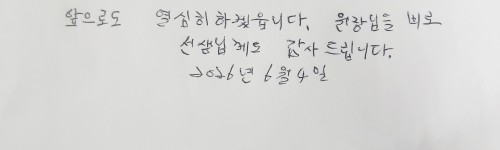 앞으로도 열심히하겠읍니다. 원장님을 비로
선생님께도 감사드립니다.
2026년 6월 4일